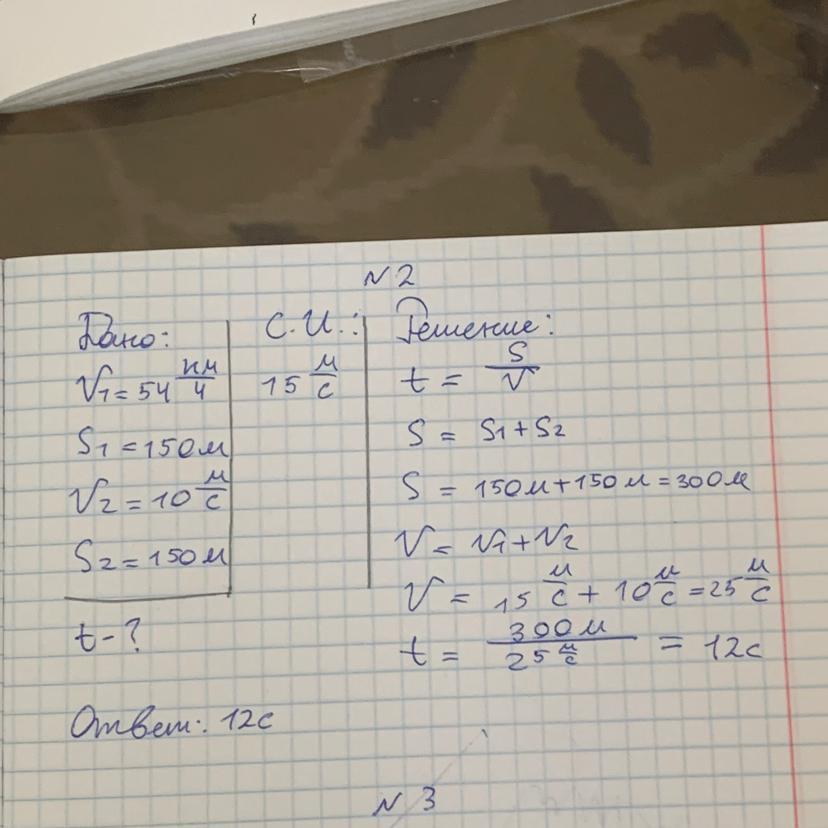 N 2
Дано:
V1 = 54 км/ч
S1 = 150 м
V2 = 10 м/с
S2 = 150 м
t - ?
С.И.:
15 м/с
Решение:
t = S/V
S = S1 + S2
S = 150 м + 150 м = 300 м
V = V1 + V2
V = 15 м/с + 10 м/с = 25 м/с
t = 300 м / 25 м/с = 12 с
Ответ: 12 с
N 3